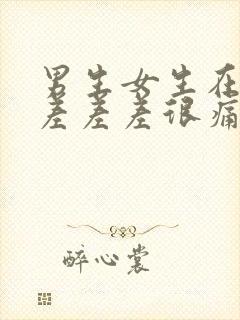 男生女生在
差差差很痛
醉心裳